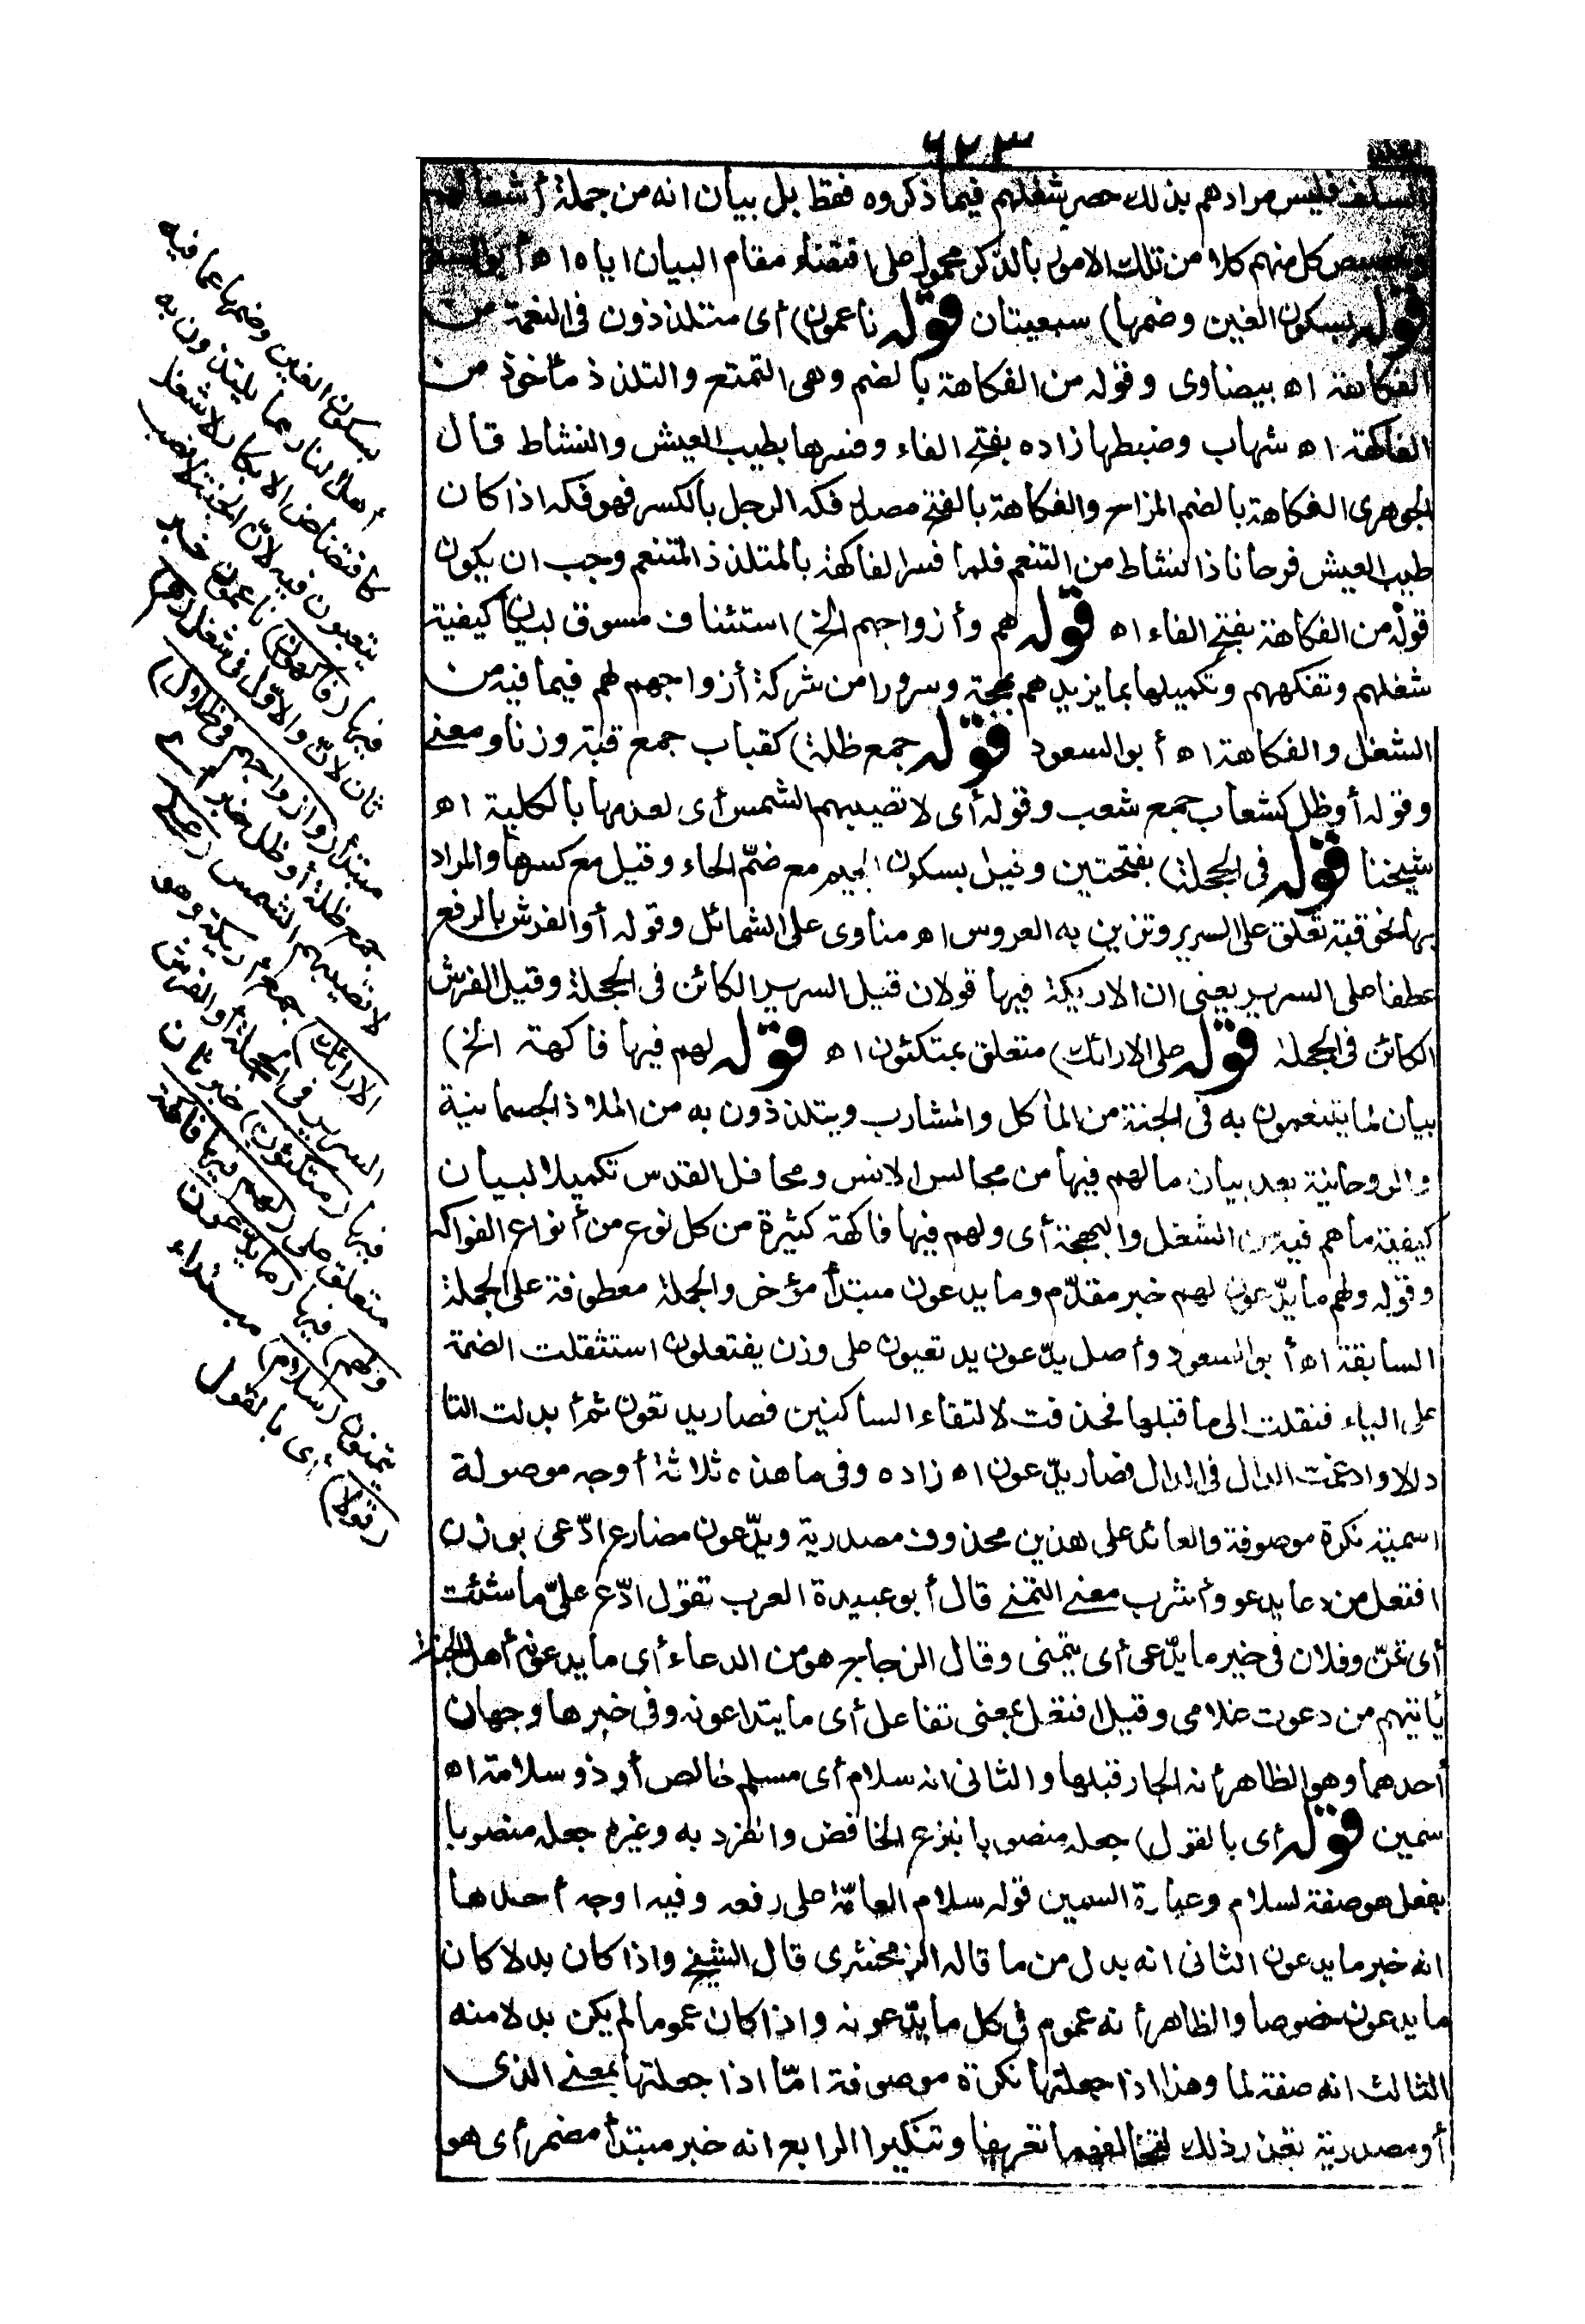 ٦٢٣
السلف فليس مرادهم بذلك حصر شغلهم فيما ذكروه فقط بل بيان انه من جملة أشغالهم
وتخصيص كل منهم كلا من تلك الامور بالذكر محمول على اقتضاء مقام البيان اياه اه أبو السعود
قوله بسكون الغين وضمها) سبعيتان قوله ناعمون) أى متلذذون فى النعمة من
الفكاهة اه بيضاوى وقوله من الفكاهة بالضم وهى التمتع والتلذذ مأخوذ من
الفاكهة اه شهاب وضبطها زاده بفتح الفاء وفسرها بطيب العيش والنشاط قال
الجوهرى الفكاهة بالضم المزاح والفكاهة بالفتح مصدر فكه الرجل بالكسر فهو فكه اذا كان
طيب العيش فرحانا ذا نشاط من التنعم فلما فسر الفاكهة بالمتلذذ المتنعم وجب ان يكون
قوله من الفكاهة بفتح الفاء اه قوله هم وأزواجهم الخ) استئناف مسوق لبيان كيفية
شغلهم وتفكههم وتكميلها بما يزيدهم بهجة وسرورا من شركة أزواجهم لهم فيما فيه من
الشغل والفكاهة اه أبو السعود قوله جمع ظلة) كقباب جمع قبة وزنا ومعنى
وقوله أو ظل كشعاب جمع شعب وقوله أى لا تصيبهم الشمس أى لعدمها بالكلية اه
شيخنا قوله فى الحجلة) بفتحتين وقيل بسكون الجيم مع ضم الحاء وقيل مع كسرها والمراد
بها نحو قبة تعلق على السرير وتزين به العروس اه مناوى على الشمائل وقوله أو الفرش بالرفع
عطفا على السرير يعنى ان الاريكة فيها قولان قيل السرير الكائن فى الحجلة وقيل الفرش
الكائن فى الحجلة قوله على الارائك) متعلق بمتكئون اه قوله لهم فيها فاكهة الخ)
بيان لما يتنعمون به فى الجنة من المأكل والمشارب ويتلذذون به من الملاذ الجسمانية
والروحانية بعد بيان ما لهم فيها من مجالس الانس ومحافل القدس تكميلا لبيان
كيفية ما هم فيه من الشغل والبهجة أى ولهم فيها فاكهة كثيرة من كل نوع من أنواع الفواكه
وقوله ولهم ما يدّعون لهم خبر مقدّم وما يدعون مبتدأ مؤخر والجملة معطوفة على الجملة
السابقة اه أبو السعود وأصل يدّعون يدتعيون على وزن يفتعلون استثقلت الضمة
على الياء فنقلت الى ما قبلها فحذفت لالتقاء الساكنين فصار يدتعون ثم أبدلت التا
دالا وادغمت الدال فى الدال فصار يدّعون اه زاده وفى ما هذه ثلاثة أوجه موصولة
اسمية نكرة موصوفة والعائد على هذين محذوف مصدرية ويدّعون مضارع ادّعى بوزن
افتعل من دعا يدعو وأشرب معنى التمنى قال أبو عبيدة العرب تقول ادّع علىّ ما شئت
أى تمنّ وفلان فى خير ما يدّعى أى يتمنى وقال الزجاج هو من الدعاء أى ما يدعونه أهل الجنة
يأتيهم من دعوت غلامى وقيل افتعل بمعنى تفاعل أى ما يتداعونه وفى خبرها وجهان
أحدهما وهو الظاهر أنه الجار قبلها والثانى انه سلام أى مسلم خالص أو ذو سلامة اه
سمين قوله أى بالقول) جعله منصوبا بنزع الخافض وانفرد به وغيره جعله منصوبا
بفعل هو صفة لسلام وعبارة السمين قوله سلام العامّة على رفعه وفيه اوجه أحدها
انه خبر ما يدعون الثانى انه بدل من ما قاله الزمخشرى قال الشيخ واذا كان بدلا كان
ما يدعون خصوصا والظاهر أنه عموم فى كل ما يدّعونه واذا كان عموما لم يكن بدلا منه
الثالث انه صفة لما وهذا اذا جعلتها نكرة موصوفة امّا اذا جعلتها بمعنى الذى
أو مصدرية تعذر ذلك لتخالفهما تعريفا وتنكيرا الرابع انه خبر مبتدأ مضمر أى هو
بسكون الغين وضمها عما فيه
أهل النار مما يلتذون به
كافتضاض الابكار لا شغل
يتعبون فيه لانّ الجنة لا نصب
فيها (فاكهون) ناعمون خبر
ثان لانّ والاوّل فى شغل (هم)
مبتدأ (وأزواجهم فى ظلال)
جمع ظلة أو ظل خبر أى
لا تصيبهم الشمس (على
الارائك) جمع أريكة وهو
السرير فى الحجلة أو الفرش
فيها (متكئون) خبر ثان
متعلق على (لهم فيها فاكهة
ولهم) فيها (ما يدعون)
يتمنون (سلام) مبتداء
(قولا) أى بالقول